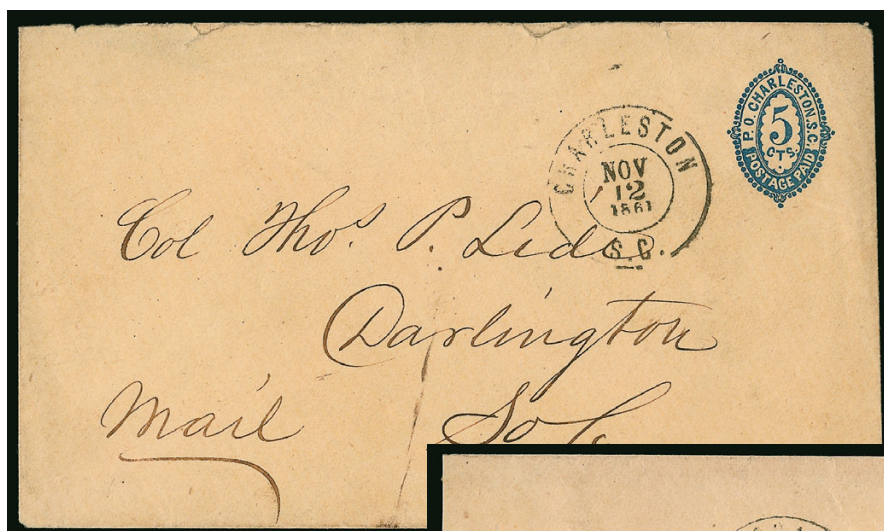 P.O. CHARLESTON. S.C.
5
CTS.
POSTAGE PAID
CHARLESTON
NOV
12
1861
S.C.
Col Thos. P. Lide
Darlington
Mail So Ca